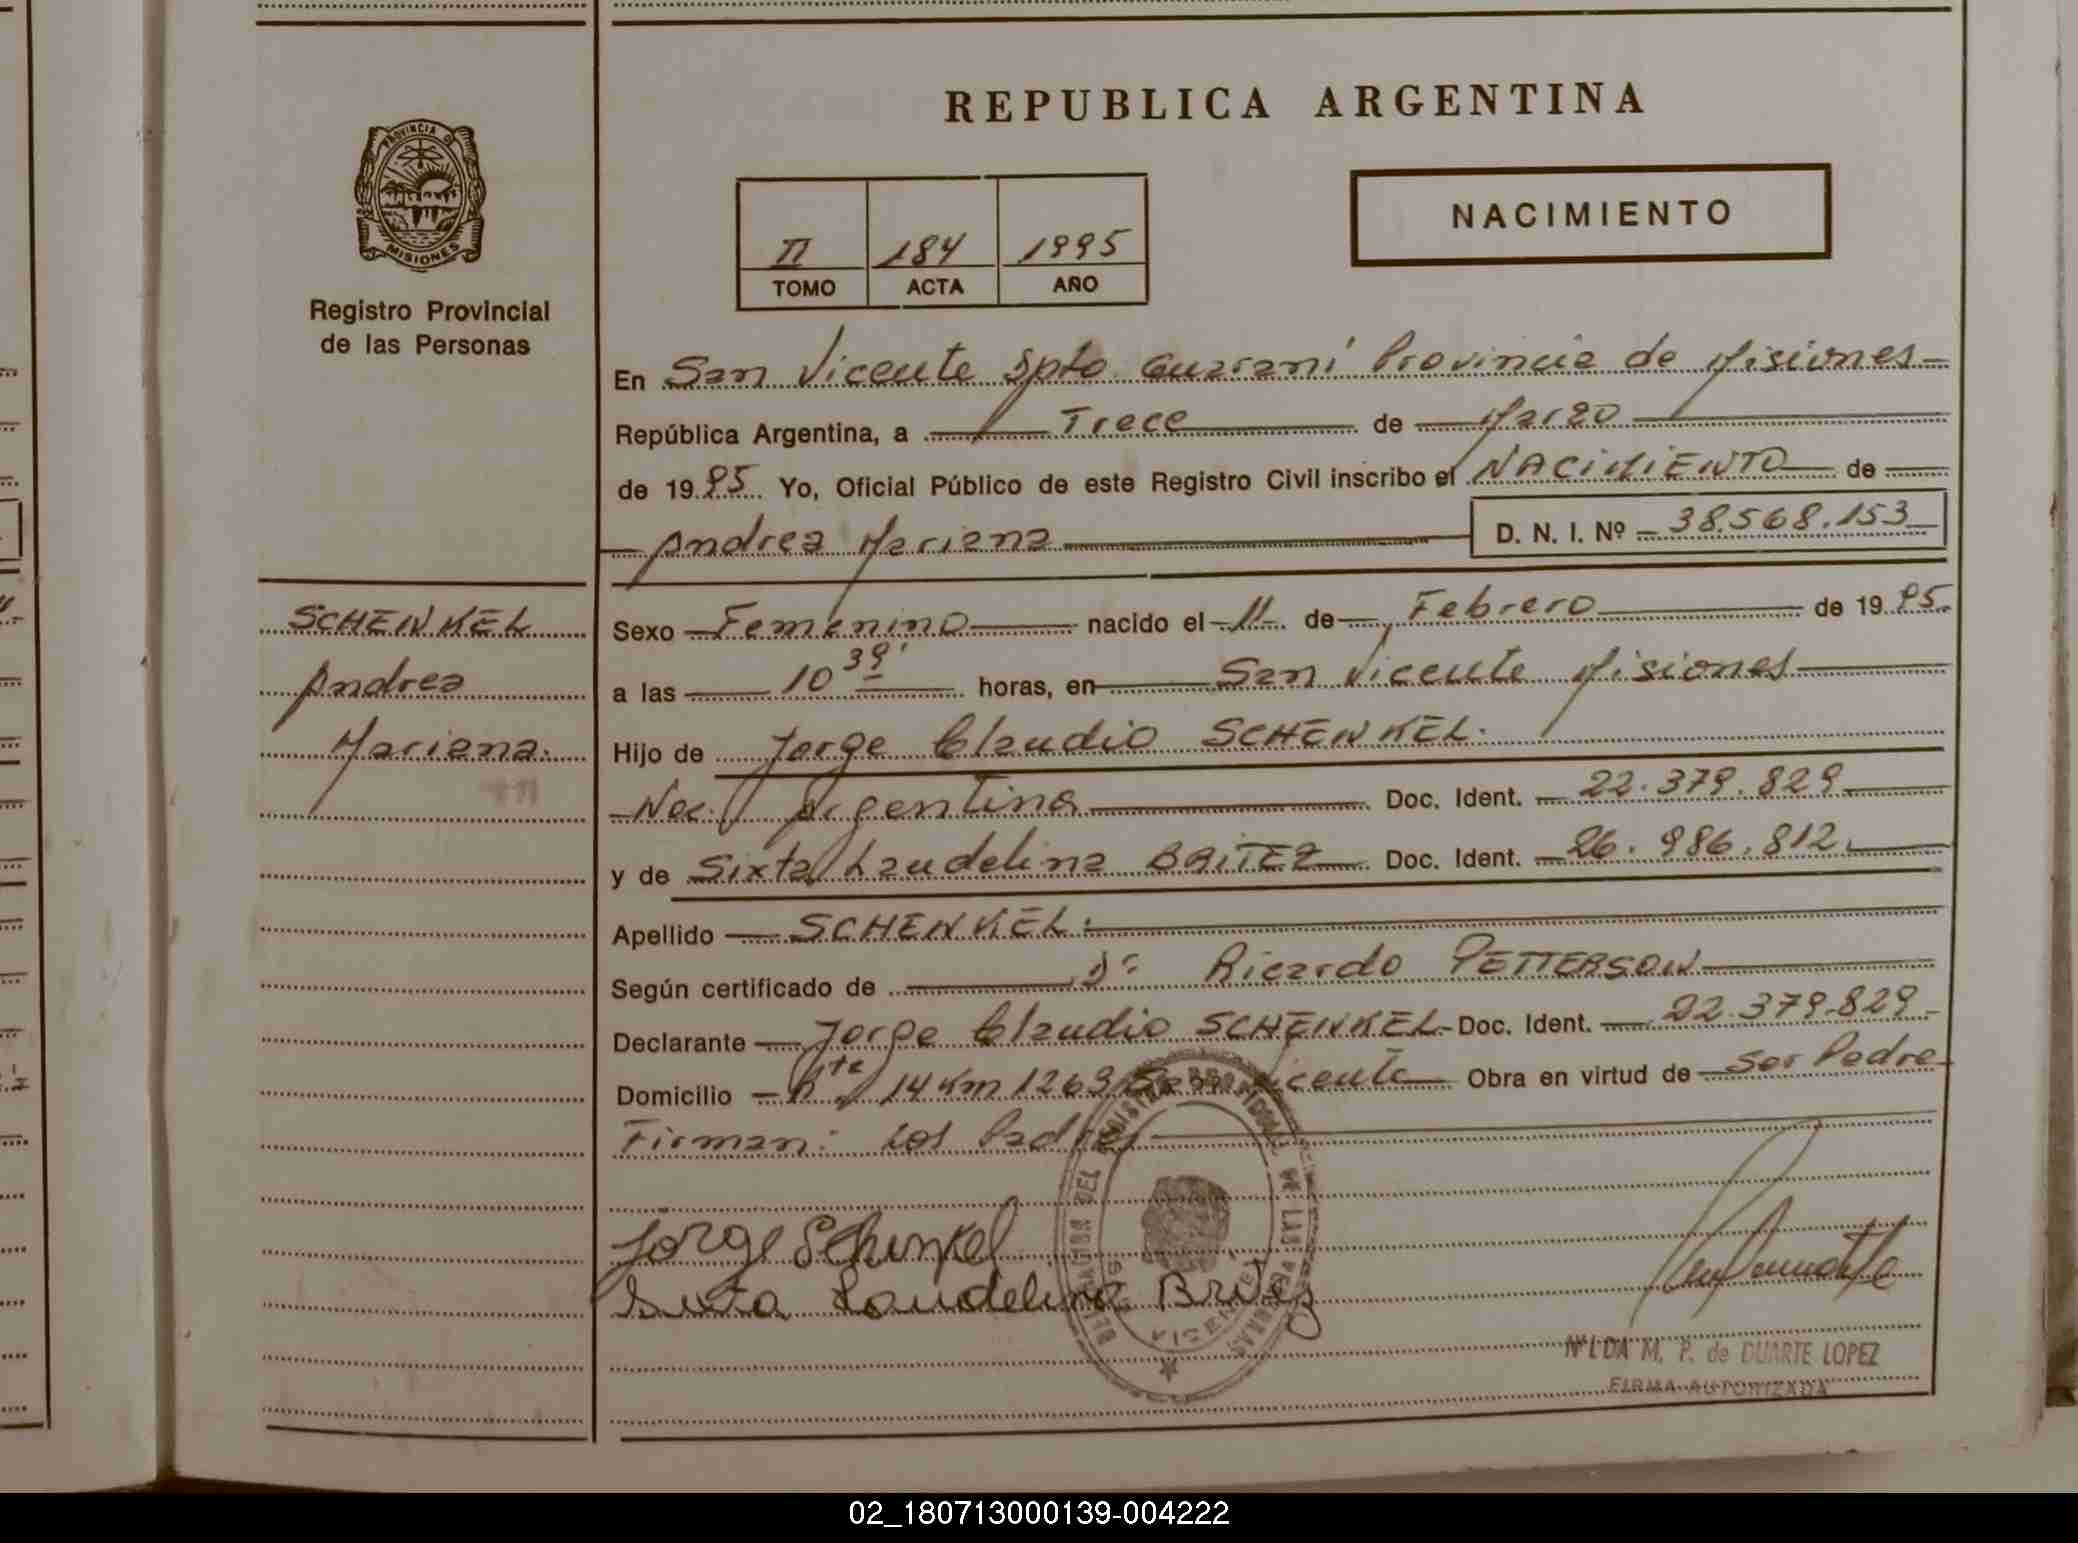 REPUBLICA ARGENTINA
PROVINCIA D
MISIONES
Registro Provincial
de las Personas
NACIMIENTO
II 184 1995
TOMO ACTA AÑO
En San Vicente Dpto Guarani Provincia de Misiones
República Argentina, a Trece de Marzo
de 1995 Yo, Oficial Público de este Registro Civil inscribo el NACIMIENTO de
Andrea Mariana D. N. I. Nº 38.568.153
SCHENKEL
Andrea
Mariana.
Sexo Femenino nacido el 11 de Febrero de 1995.
a las 10 39' horas, en San Vicente Misiones
Hijo de Jorge Claudio SCHENKEL.
Nac. Argentina Doc. Ident. 22.379.829
y de Sixta Laudelina BRITEZ Doc. Ident. 26.986.812.
Apellido SCHENKEL.
Según certificado de Dr Ricardo PETTERSON
Declarante Jorge Claudio SCHENKEL Doc. Ident. 22.379.829
Domicilio Rta 14 Km 1269 San Vicente Obra en virtud de Ser Padre
Firman: Los Padres
Jorge Schenkel
Sixta Laudelina Britez
DELEGACION DEL REGISTRO PROVINCIAL DE LAS PERSONAS
VICENTE
M. P. de DUARTE LOPEZ
FIRMA AUTORIZADA
02_180713000139-004222